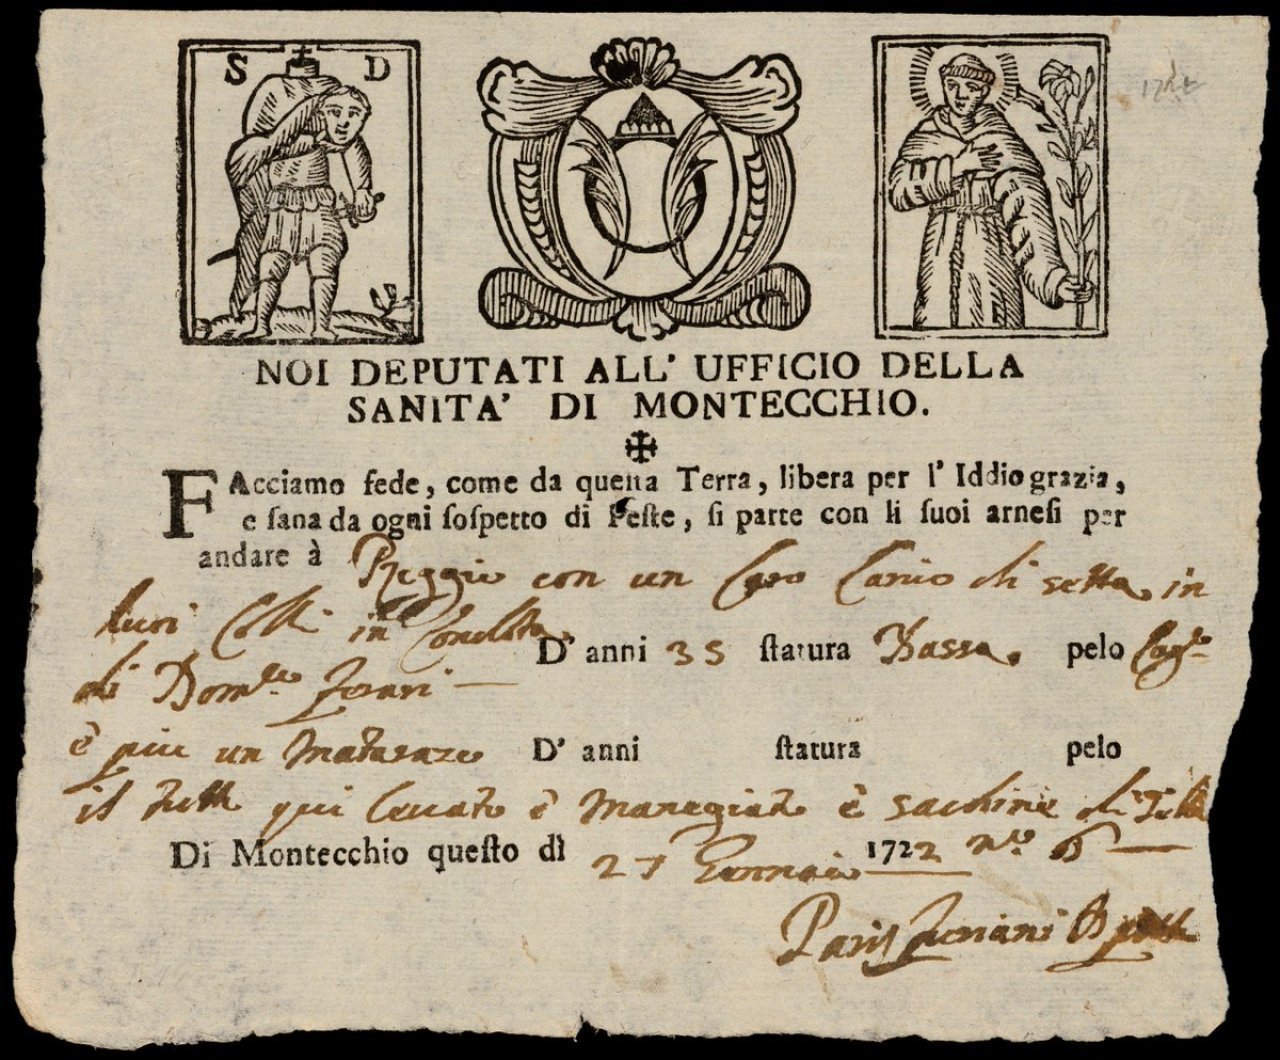 S D
1722
NOI DEPUTATI ALL' UFFICIO DELLA
SANITA' DI MONTECCHIO.
✠
FAcciamo fede, come da questa Terra, libera per l' Iddio grazia,
e sana da ogni sospetto di Peste, si parte con li suoi arnesi per
andare à Reggio con un Caro Carico di setta in
Colli in Condotta
D' anni 35 statura Bassa. pelo
di Dom.co
è piu un Matarazo D' anni statura pelo
il tutto qui levato è è sachine di Tella
Di Montecchio questo dì 27 Gennaio 1722 n.o 6